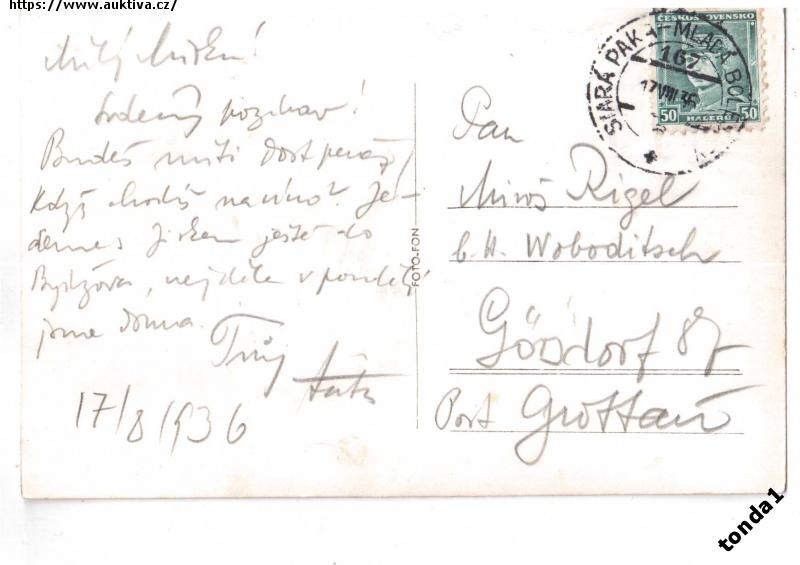 https://www.auktiva.cz/
Milý Mirku!
Srdečný pozdrav!
Budeš míti dost peněz,
když chodíš na víno? Je-
deme s Jirkem ještě do
Bydžova, nejdéle v pondělí
jsme doma.
Tvůj táta
17/8 1936
FOTO-FON
ČESKOSLOVENSKO
50 HALÉŘŮ 50
STARÁ PAKA-MLADÁ BOL
167
17 VIII 36
Pan
Miroš Rigel
b. H. Woboditsch
Görsdorf 87
Post Grottau
tonda1